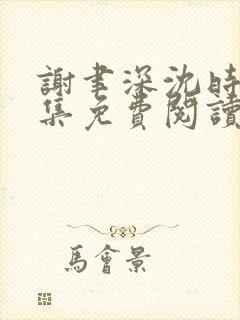 謝聿深沈時
集免費閱讀
馬會景